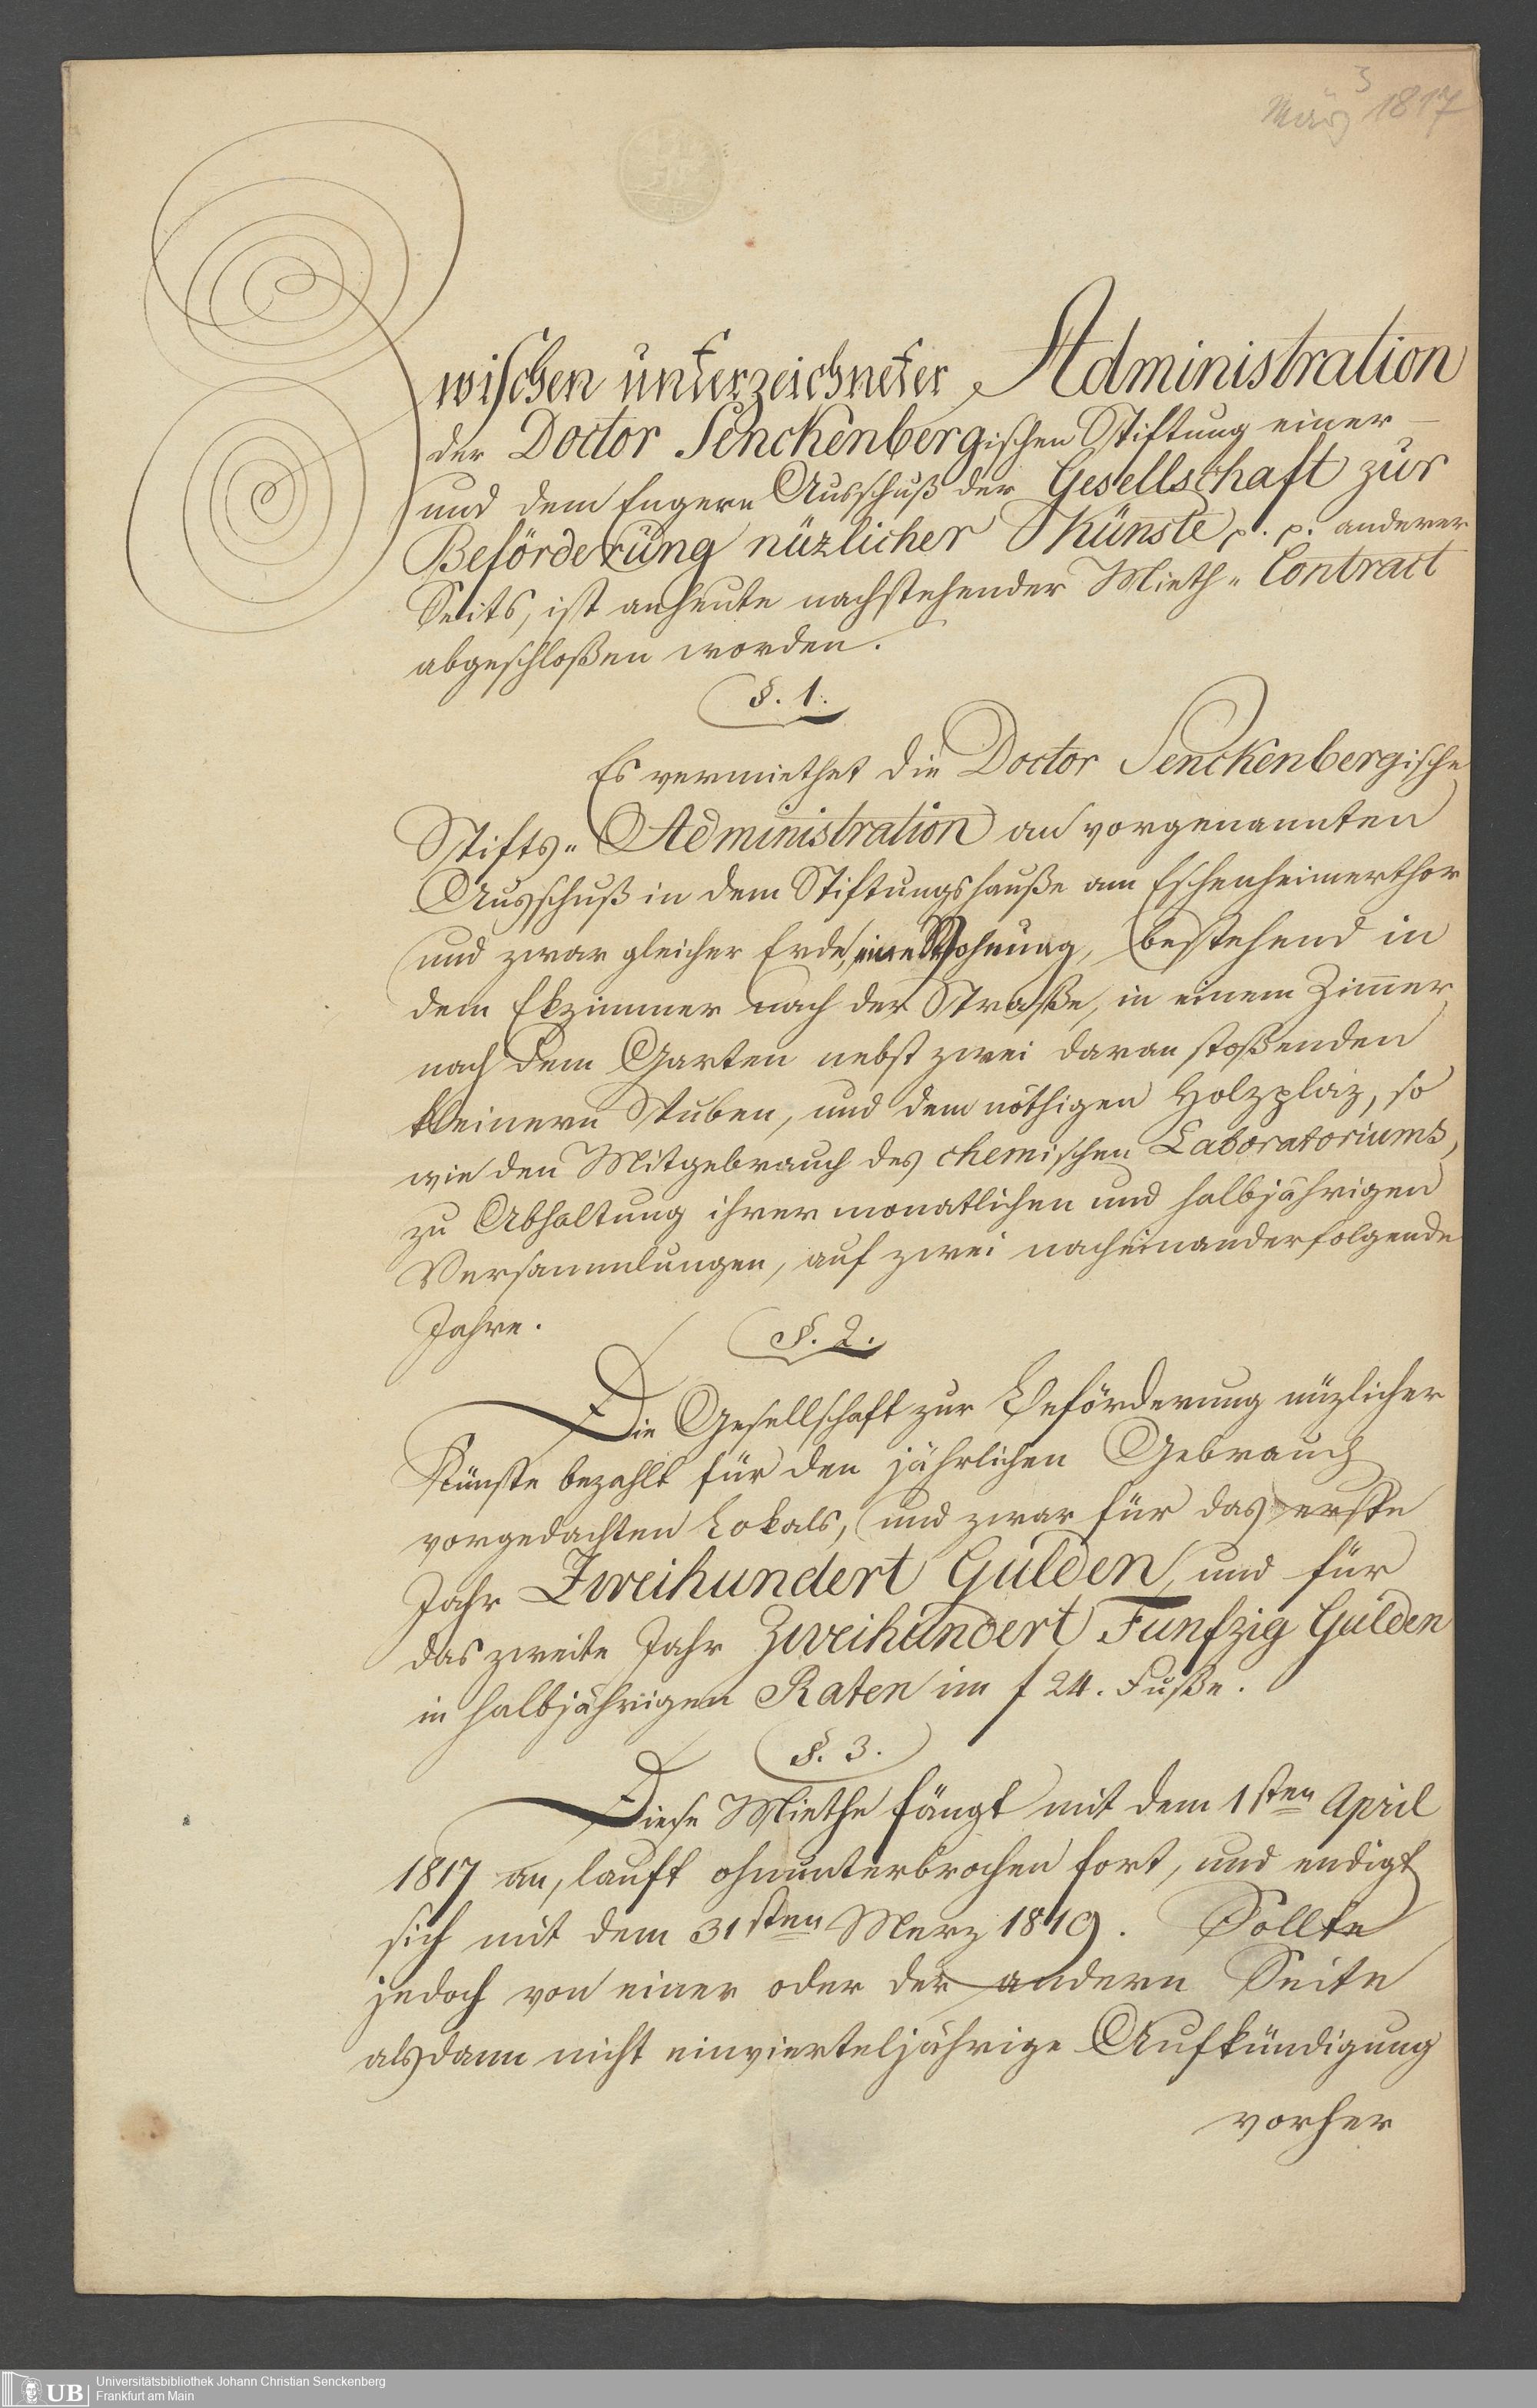 3
März 1817
Zwischen unterzeichneter Administration
der Doctor Senckenbergischen Stiftung einer-
und dem Engern Ausschuß der Gesellschaft zur
Beförderung nüzlicher Künste p. p. anderer
Seits, ist anheute nachstehender Mieth„Contract
abgeschloßen worden.
§. 1.
Es vermiethet die Doctor Senckenbergische
Stifts„Administration an vorgenannten
Ausschuß in dem Stiftungshauße am Eschenheimerthor
und zwar gleicher Erde, eine Wohnung, bestehend in
dem Ekzimmer nach der Straße, in einem Zim̅er
nach dem Garten nebst zwei daran stoßenden
kleinern Stuben, und dem nöthigen Holzplaz, so
wie den Mitgebrauch des chemischen Laboratoriums,
zu Abhaltung ihrer monatlichen und halbjährigen
Versammlungen, auf zwei nacheinanderfolgende
Jahre.
§. 2.
Die Gesellschaft zur Beförderung nüzlicher
Künste bezahlt für den jährlichen Gebrauch
vorgedachten Lokals, und zwar für das erste
Jahr Zweihundert Gulden, und für
das zweite Jahr Zweihundert Funfzig Gulden
in halbjährigen Raten im f 24. Fuße.
§. 3.
Diese Miethe fängt mit dem 1sten April
1817 an, lauft ohnunterbrochen fort, und endigt
sich mit dem 31sten Merz 1819. Sollte
jedoch von einer oder der andern Seite
alsdann nicht einvierteljährige Aufkündigung
vorher
UB
Universitätsbibliothek Johann Christian Senckenberg
Frankfurt am Main